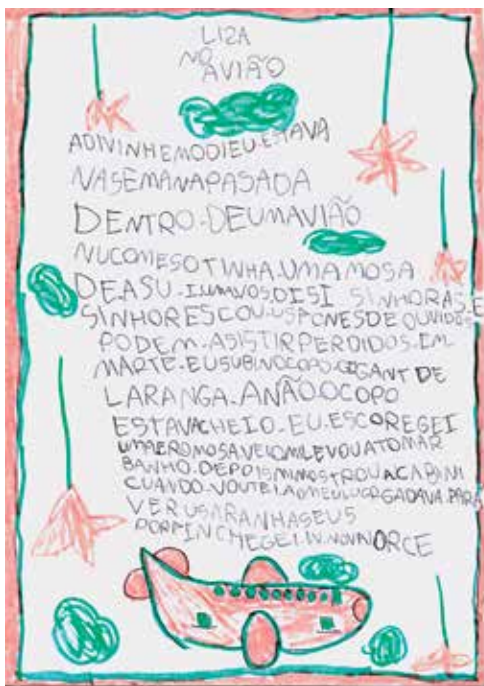 LIZA
NO
AVIÃO
ADIVINHEMODIEU.ESTAVA
NASEMANAPASADA
DENTRO.DEUMAVIÃO
NUCOMESOTINHA.UMAMOSA
DEASU.IUMAVOS.DISI SINHORAS.E
SINHORESCOU.USFONESDEOUVIDOS
PODEM.ASISTIRPERDIDOS.EM
MARTE.EUSUBINOCOPO.GIGANTDE
LARANGA.ANÃO.OCOPO
ESTAVACHEIO.EU.ESCOREGEI
UMAEROMOSAVEIOMILEVOUATOMAR
BANHO.DEPOISMIMOSTROUACABINI
CUANDO.VOUTEIAOMEULUGRGADAVA.PARA
VERUSARANHASEUS
PORFINCHEGEI.IN.NOVAIORCE